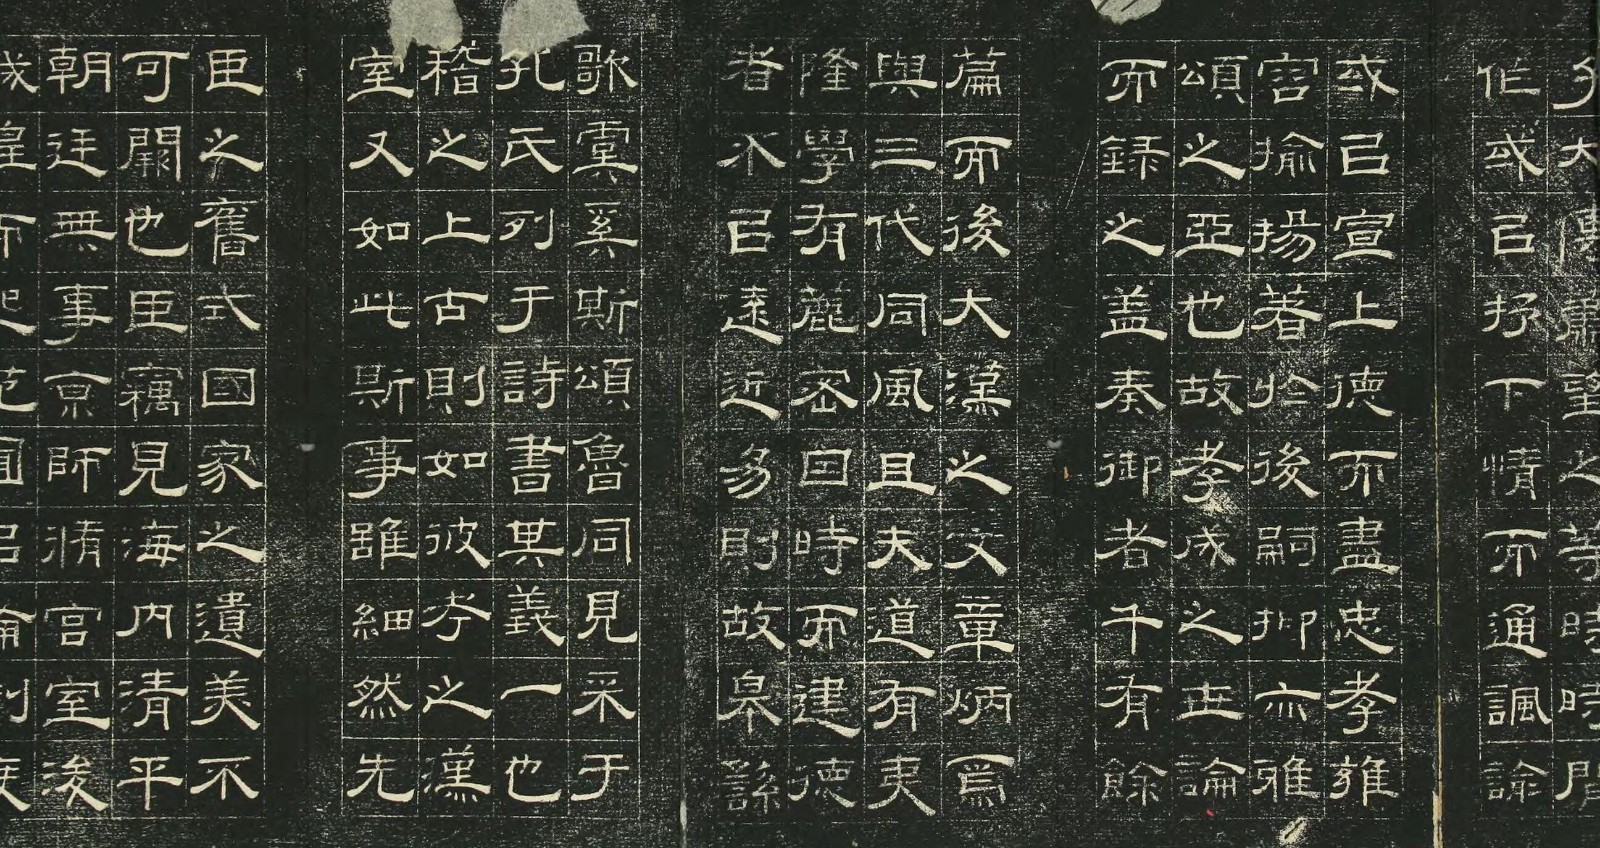 大傅蕭望之等時時間
作或㠯抒下情而通諷諭
或㠯宣上德而盡忠孝雍
容揄揚著於後嗣抑亦雅
頌之亞也故孝成之世論
而錄之蓋奏御者千有餘
篇而後大漢之文章炳焉
與三代同風且夫道有夷
隆學有麤密因時而建德
者不㠯遠近易則故皋繇
歌虞奚斯頌魯同見采于
孔氏列于詩書其義一也
稽之上古則如彼考之漢
室又如此斯事雖細然先
臣之舊式國家之遺美不
可闕也臣竊見海內清平
朝廷無事京師脩宮室浚
城隍而起苑囿㠯備制度